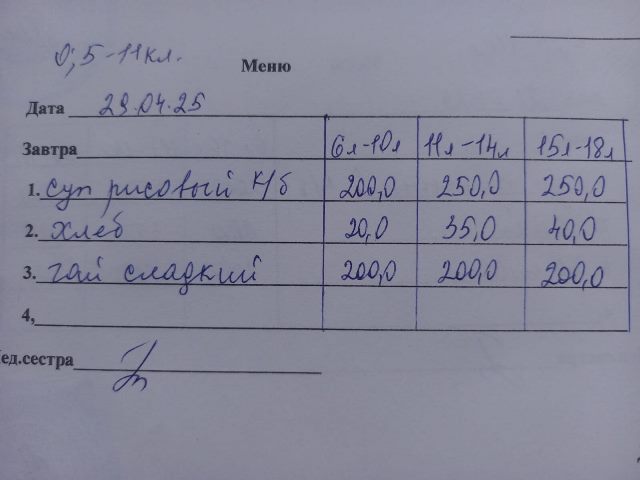 0; 5-11 кл.
Меню
Дата 29.04.25
Завтра 6л-10л 11л-14л 15л-18л
1. суп рисовый к/б 200,0 250,0 250,0
2. хлеб 20,0 35,0 40,0
3. чай сладкий 200,0 200,0 200,0
4,
ед.сестра